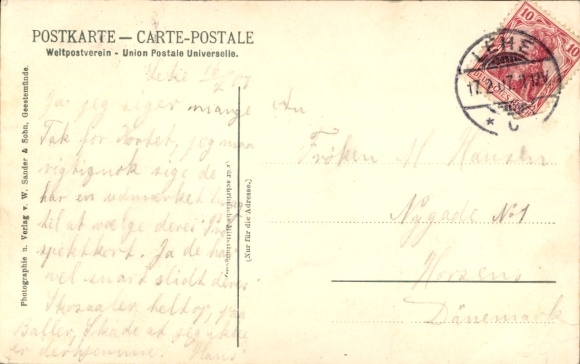 POSTKARTE — CARTE-POSTALE
Weltpostverein - Union Postale Universelle.
Photographie u. Verlag v. W. Sander & Sohn, Geestemünde.
Lehe 16/2 07
Ja jeg siger mange
Tak for Kortet, jeg maa
rigtignok sige de
har en udmærket
til at vælge deres Pro
spektkort. Ja de har
vel snart slidt deres
Skosaaler helt op, paa
Baller, Skade at jeg ikke
er derhjemme. Hans
(Nur für die Adresse.)
An
Frøken M Hansen
Nygade No 1
Horsens
Dänemark
10
LEHE
17.2.07